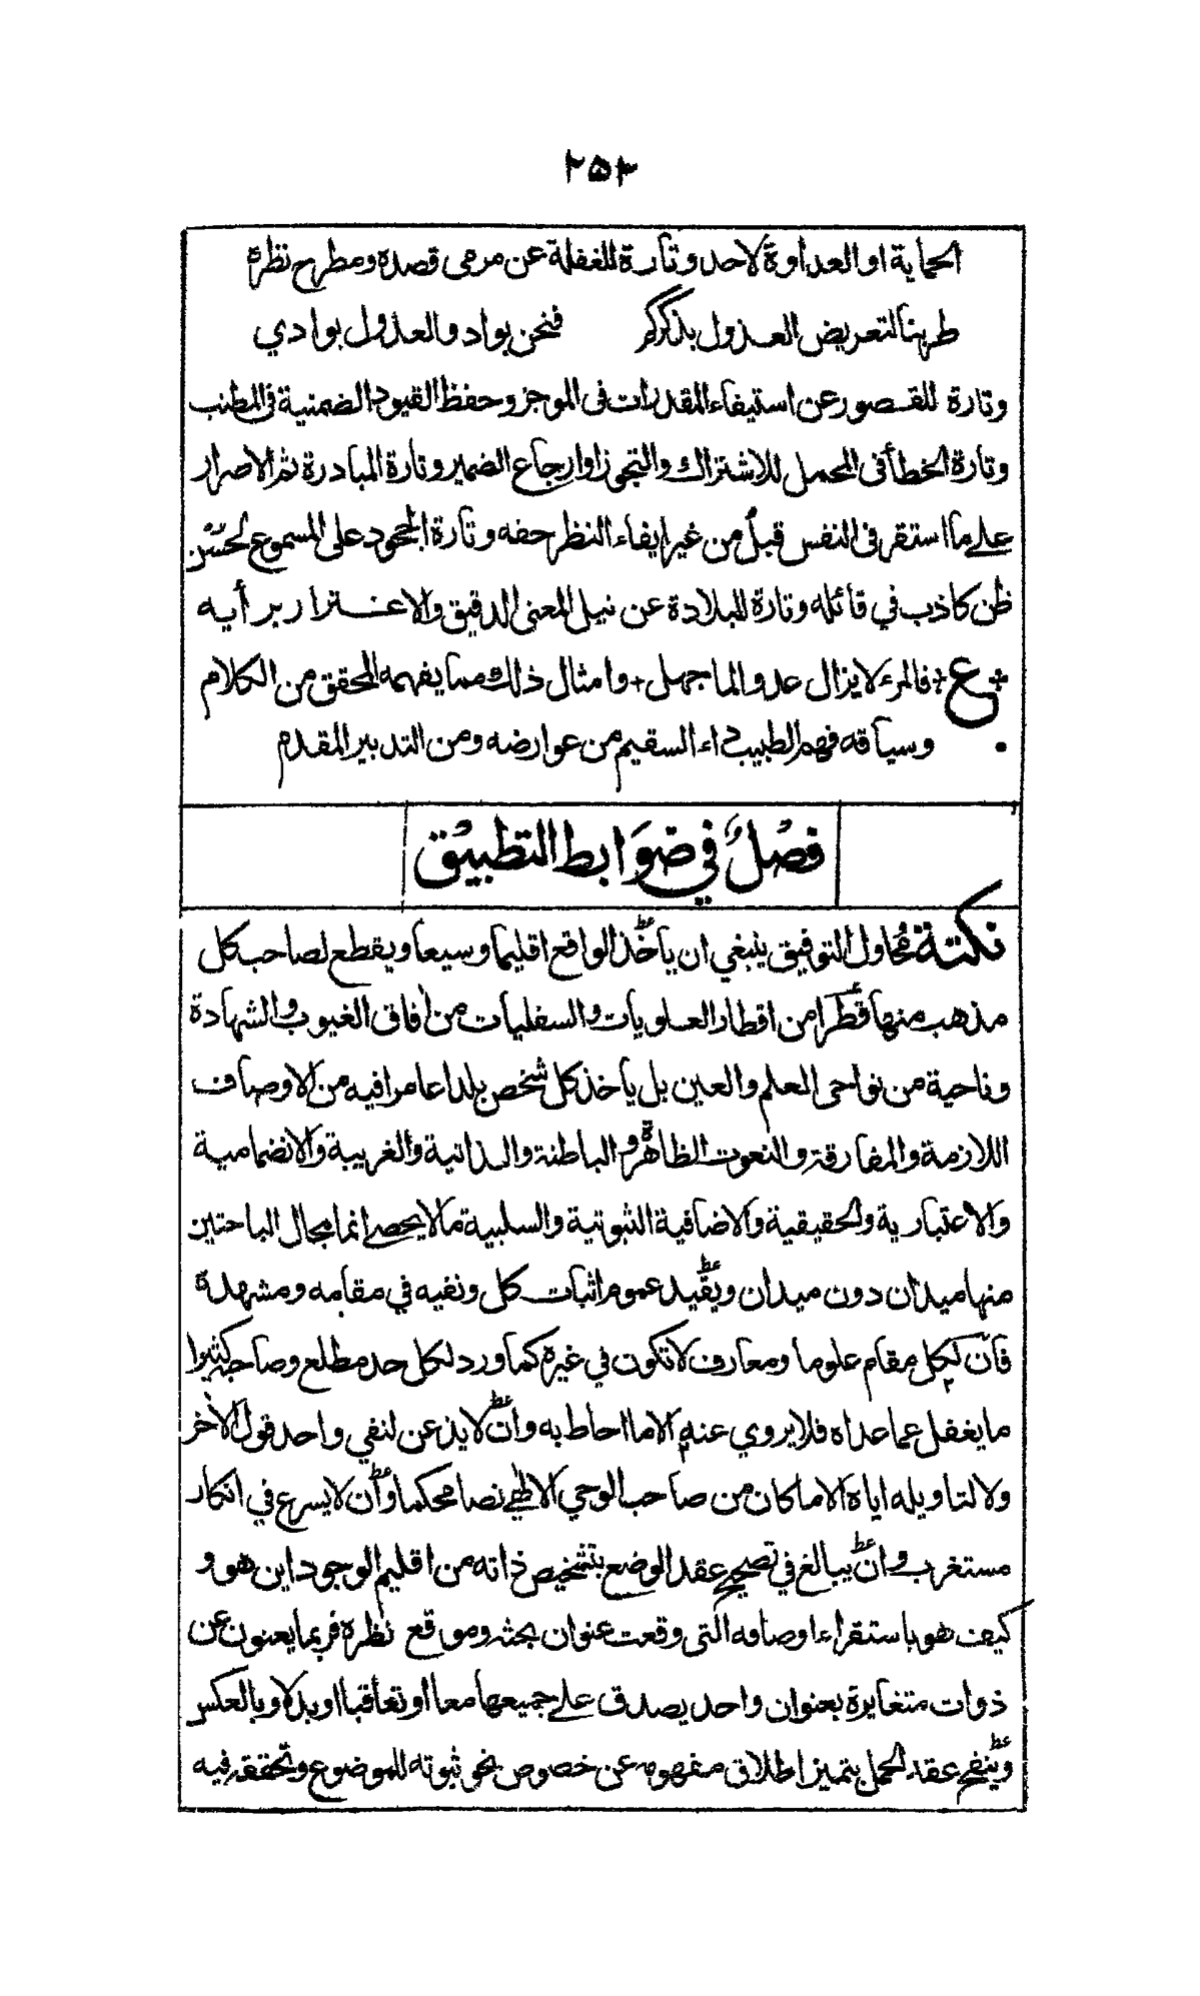 ٢٥٣
الحماية او العداوة لاحد وتارة للغفلة عن مرمى قصده ومطرح نظره
طربنا لتعريض العذول بذكركم فنحن بواد والعذول بوادي
وتارة للقصور عن استيفاء المقدرات فى الموجز وحفظ القيود الضمنية فى المطنب
وتارة الخطأ فى المحمل للاشتراك والتجوز او ارجاع الضمير وتارة المبادرة ثم الاصرار
على ما استقر فى النفس قبلُ من غير ايفاء النظر حقه وتارة الجحود على المسموع لحسْن
ظن كاذب في قائله وتارة للبلادة عن نيل المعنى الدقيق والاغترار برأيه
+ ع + فالمرء لا يزال عدوا لما جهل + وامثال ذلك مما يفهمه المحقق من الكلام
وسياقه فهم الطبيب داء السقيم من عوارضه ومن التدبير المقدم
فصْلٌ في ضوَابط التطبيْق
نكتة مُحاول التوفيق ينبغي ان ياخذ الواقع اقليما وسيعا ويقطع لصاحب كل
مذهب منها قُطرًا من اقطار العلويات والسفليات من اٰفاق الغيوب والشهادة
وناحية من نواحى العلم والعين بل ياخذ كل شخص بلدا عامرا فيه من الاوصاف
اللازمة والمفارقة والنعوت الظاهرة والباطنة والذاتية والغريبة والانضمامية
والاعتبارية والحقيقية والاضافية الثبوتية والسلبية ما لا يحصے انما مجال الباحثين
منها ميدان دون ميدان ويقيد عموم اثبات كل ونفيه في مقامه ومشهده
فانّ لكل مقام علوما ومعارف لا تكون في غيره كما ورد لكل حد مطلع وصاحبه كثيرا
ما يغفل عما عداه فلا يروي عنه الا ما احاط به وان لا يذعن لنفي واحد قول الاٰخر
ولا لتاويله اياه الا ما كان من صاحب الوحي الالٰهے نصا محكما وان لا يسرع في انكار
مستغرب وان يبالغ في تصحيح عقد الوضع بتشخيص ذاته من اقليم الوجود اين هو و
كيف هو باستقراء اوصافه التى وقعت عنوان بحثه وموقع نظره فربما يعنون عن
ذوات متغايرة بعنوان واحد يصدق علے جميعها معا او تعاقبا او بدلا وبالعكس
وينقح عقد الحمل بتميز اطلاق مفهومه عن خصوص نحو ثبوته للموضوع وتحققه فيه